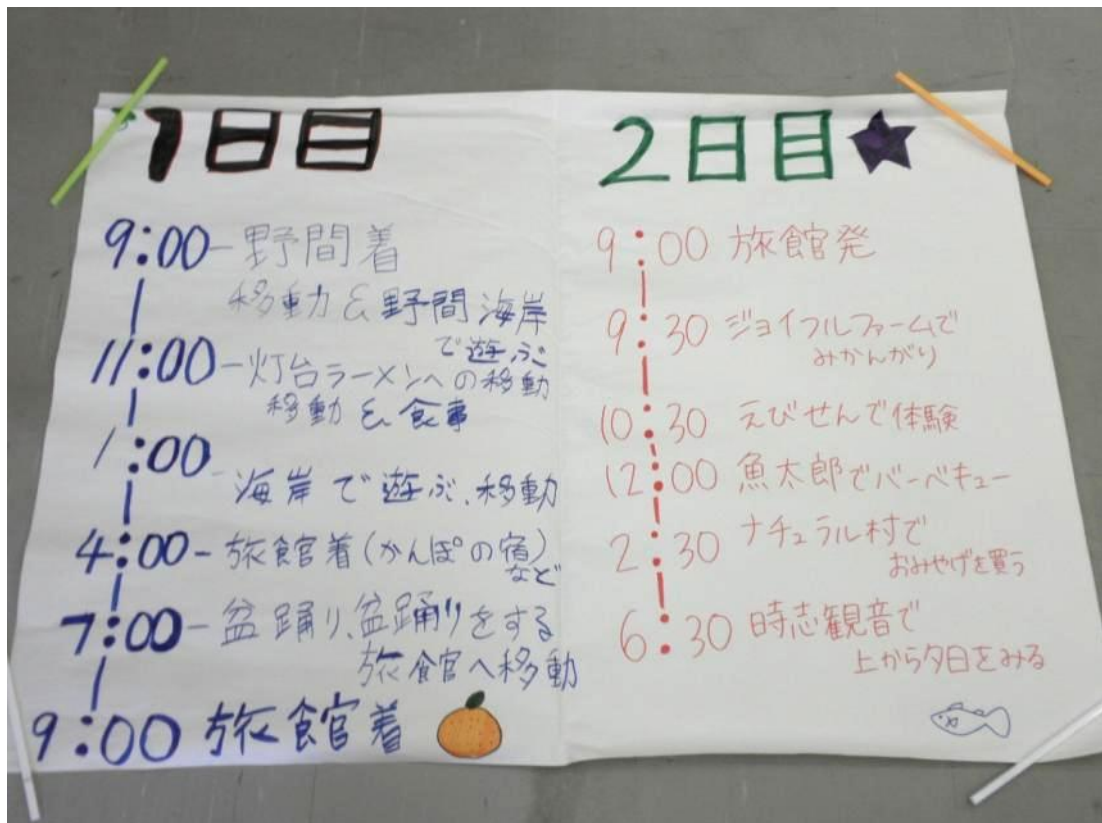 1日目
9:00-野間着
移動&野間海岸
で遊ぶ
11:00-灯台ラーメンへの移動
移動&食事
1:00
海岸で遊ぶ、移動
4:00-旅館着(かんぽの宿)
など
7:00-盆踊り、盆踊りをする
旅館へ移動
9:00 旅館着
2日目
9:00 旅館発
9:30 ジョイフルファームで
みかんがり
10:30 えびせんで体験
12:00 魚太郎でバーベキュー
2:30 ナチュラル村で
おみやげを買う
6:30 時志観音で
上から夕日をみる